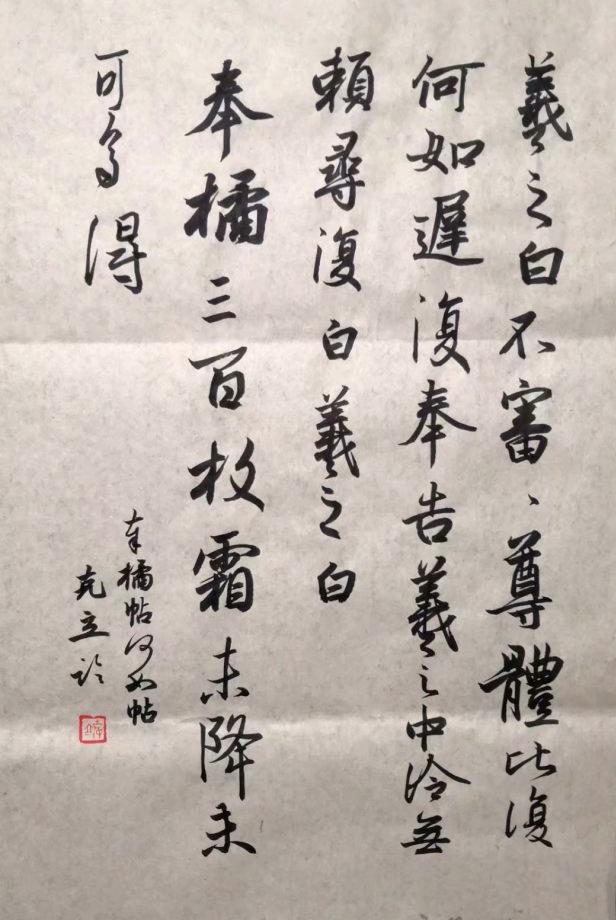 羲之白不審、尊體比復
何如遲復奉告羲之中冷無
賴尋復白羲之白
奉橘三百枚霜未降未
可多得
奉橘帖何如帖
克立临